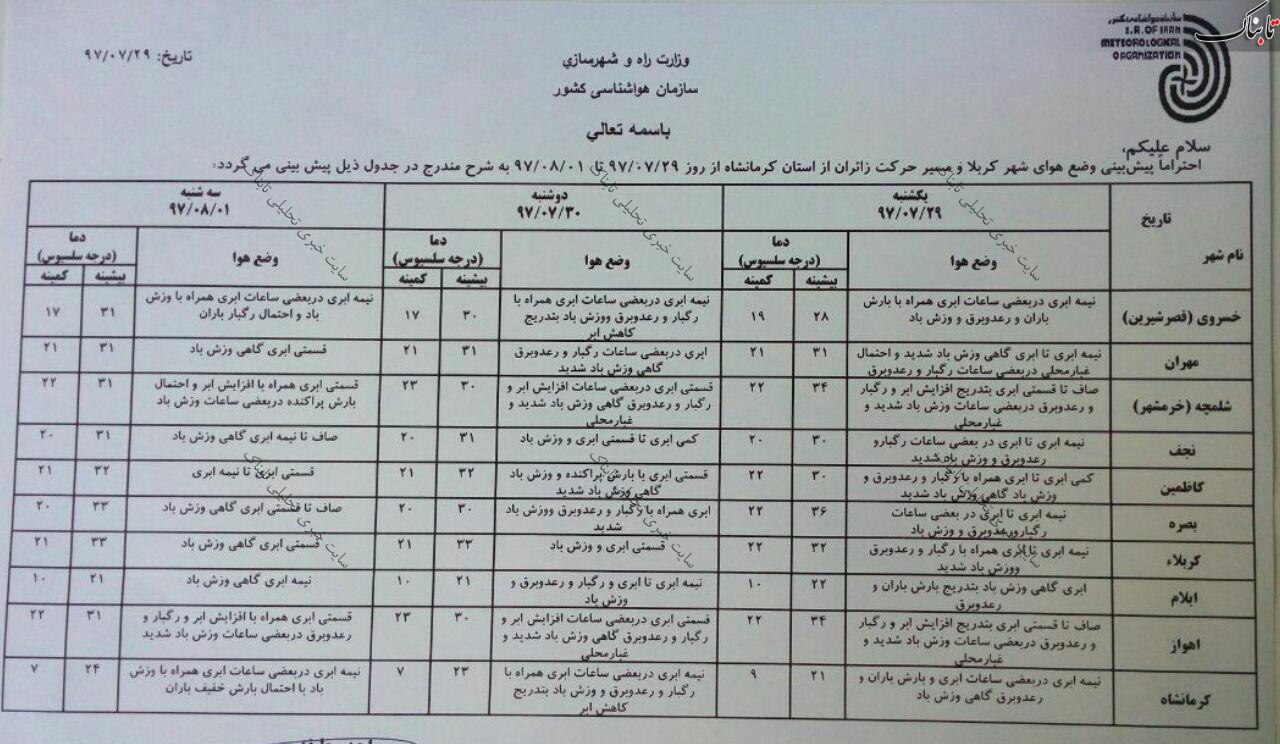 تابناک
سازمان هواشناسی کشور
I.R.OF IRAN
METEOROLOGICAL
ORGANIZATION
تاریخ: ۹۷/۰۷/۲۹
وزارت راه و شهرسازي
سازمان هواشناسی کشور
باسمه تعالي
سلام علیکم،
احتراماً پیش‌بینی وضع هوای شهر کربلا و مسیر حرکت زائران از استان کرمانشاه از روز ۹۷/۰۷/۲۹ تا ۹۷/۰۸/۰۱ به شرح مندرج در جدول ذیل پیش بینی می گردد:
تاریخ
نام شهر
یکشنبه
۹۷/۰۷/۲۹
دوشنبه
۹۷/۰۷/۳۰
سه شنبه
۹۷/۰۸/۰۱
وضع هوا
دما
(درجه سلسیوس)
بیشینه کمینه
وضع هوا
دما
(درجه سلسیوس)
بیشینه کمینه
وضع هوا
دما
(درجه سلسیوس)
بیشینه کمینه
خسروی (قصرشیرین)
نیمه ابری دربعضی ساعات ابری همراه با بارش
باران و رعدوبرق و وزش باد
۲۸ ۱۹
نیمه ابری دربعضی ساعات ابری همراه با
رگبار و رعدوبرق ووزش باد بتدریج
کاهش ابر
۳۰ ۱۷
نیمه ابری دربعضی ساعات ابری همراه با وزش
باد و احتمال رگبار باران
۳۱ ۱۷
مهران
نیمه ابری تا ابری گاهی وزش باد شدید و احتمال
غبارمحلی دربعضی ساعات رگبار و رعدوبرق
۳۱ ۲۱
ابری دربعضی ساعات رگبار و رعدوبرق
گاهی وزش باد شدید
۳۱ ۲۱
قسمتی ابری گاهی وزش باد
۳۱ ۲۱
شلمچه (خرمشهر)
صاف تا قسمتی ابری بتدریج افزایش ابر و رگبار
و رعدوبرق دربعضی ساعات وزش باد شدید و
غبارمحلی
۳۴ ۲۲
قسمتی ابری دربعضی ساعات افزایش ابر و
رگبار و رعدوبرق گاهی وزش باد شدید و
غبارمحلی
۳۰ ۲۳
قسمتی ابری همراه با افزایش ابر و احتمال
بارش پراکنده دربعضی ساعات وزش باد
۳۱ ۲۲
نجف
نیمه ابری تا ابری در بعضی ساعات رگبارو
رعدوبرق و وزش باد شدید
۳۰ ۲۰
کمی ابری تا قسمتی ابری و وزش باد
۳۱ ۲۰
صاف تا نیمه ابری گاهی وزش باد
۳۱ ۲۰
کاظمین
کمی ابری تا ابری همراه با رگبار و رعدوبرق و
وزش باد گاهی وزش باد شدید
۳۰ ۲۲
قسمتی ابری با بارش پراکنده و وزش باد
گاهی وزش باد شدید
۳۲ ۲۱
قسمتی ابری تا نیمه ابری
۳۲ ۲۱
بصره
نیمه ابری تا ابری در بعضی ساعات
رگبارورعدوبرق و وزش باد
۳۶ ۲۲
ابری همراه با رگبار و رعدوبرق ووزش باد
شدید
۳۰ ۲۰
صاف تا قسمتی ابری گاهی وزش باد
۳۳ ۲۰
کربلاء
نیمه ابری تا ابری همراه با رگبار و رعدوبرق
ووزش باد شدید
۳۲ ۲۲
قسمتی ابری و وزش باد
۳۳ ۲۱
قسمتی ابری گاهی وزش باد
۳۳ ۲۱
ایلام
ابری گاهی وزش باد بتدریج بارش باران و
رعدوبرق
۲۲ ۱۰
نیمه ابری تا ابری و رگبار و رعدوبرق و
وزش باد
۲۱ ۱۰
نیمه ابری گاهی وزش باد
۲۱ ۱۰
اهواز
صاف تا قسمتی ابری بتدریج افزایش ابر و رگبار
و رعدوبرق دربعضی ساعات وزش باد شدید و
غبارمحلی
۳۴ ۲۲
قسمتی ابری دربعضی ساعات افزایش ابر و
رگبار و رعدوبرق گاهی وزش باد شدید و
غبارمحلی
۳۰ ۲۳
قسمتی ابری همراه با افزایش ابر و رگبار و
رعدوبرق دربعضی ساعات وزش باد شدید
۳۱ ۲۲
کرمانشاه
نیمه ابری دربعضی ساعات ابری و بارش باران و
رعدوبرق گاهی وزش باد
۲۱ ۹
نیمه ابری دربعضی ساعات ابری همراه با
رگبار و رعدوبرق و وزش باد بتدریج
کاهش ابر
۲۳ ۷
نیمه ابری دربعضی ساعات ابری همراه با وزش
باد با احتمال بارش خفیف باران
۲۴ ۷
سایت خبری تحلیلی تابناک
سایت خبری تحلیلی تابناک
سایت خبری تحلیلی تابناک
سایت خبری تحلیلی تابناک
سایت خبری تحلیلی تابناک
سایت خبری تحلیلی تابناک